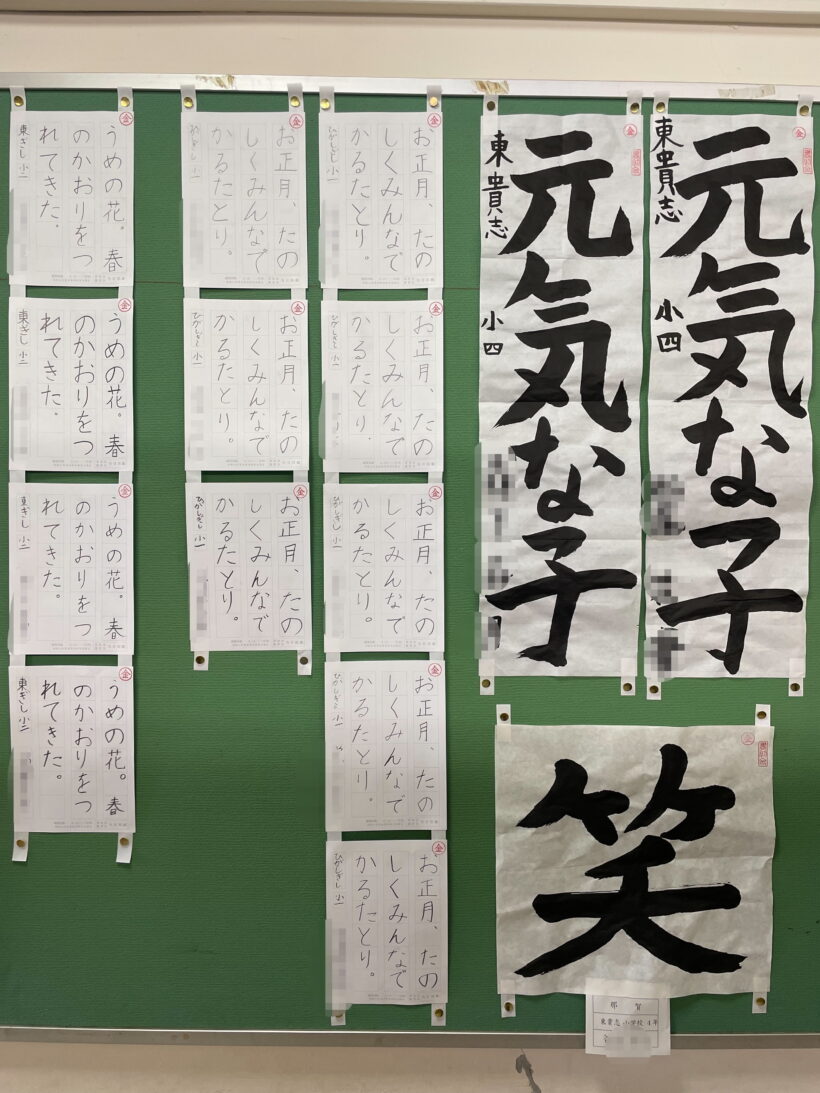 金
元気な子
東貴志 小四
金
元気な子
東貴志 小四
金
笑
那賀
東貴志小学校4年
金
お正月、たの
しくみんなで
かるたとり。
ひがしきし 小一
金
お正月、たの
しくみんなで
かるたとり.
ひがしきし 小一
金
お正月、たの
しくみんなで
かるたとり。
ひがしきし 小一
金
お正月、たの
しくみんなで
かるたとり。
ひがしきし 小一
金
お正月、たの
しくみんなで
かるたとり。
ひがしきし 小一
金
お正月、たの
しくみんなで
かるたとり。
ひがしきし 小一
金
お正月、たの
しくみんなで
かるたとり。
ひがしきし 小一
金
お正月、たの
しくみんなで
かるたとり。
ひがしきし 小一
金
うめの花。春
のかおりをつ
れてきた。
東きし 小二
金
うめの花。春
のかおりをつ
れてきた。
東きし 小二
金
うめの花。春
のかおりをつ
れてきた。
東きし 小二
金
うめの花。春
のかおりをつ
れてきた。
東きし 小二